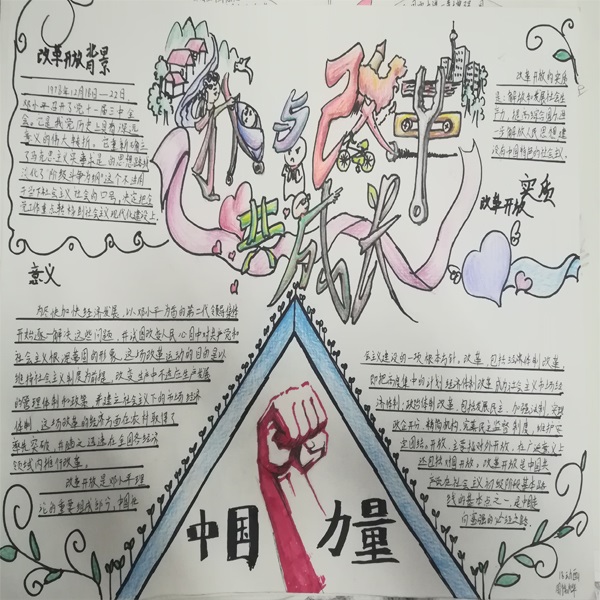 改革开放背景
1978年12月18日—22日,
邓小平召开了党十一届三中全
会,它是我党历史上具有深远
意义的伟大转折。它重新确立
了马克思主义实事求是的思想路线
我与改革
共成长
改革开放的实质
是:解放和发展社会生
产力,提高综合国力,进
一步解放人民思想,建
设有中国特色的社会主义。
改革开放 实质
意义
为尽快加快经济发展,以邓小平为首的第二代领导集体
开始逐一解决这些问题,并试图改变人民心目中对共产党和
社会主义
这场改革运动的目的是以
维持社会主义制度为前提,改变生产中不适应生产发展
的管理体制和政策,并建立社会主义下的市场经济
体制。这场改革的经济方面在农村取得了
率先突破,并随之迅速在全国各经济
领域内推行改革。
改革开放是邓小平理
论的重要组成部分,中国社
会主义建设的一项根本方针。改革,包括经济体制改革,
即把高度集中的计划经济体制改革成为社会主义市场经
济体制;政治体制改革,包括发展民主,加强法制,实现
政企分开、精简机构、完善民主监督制度,维护安
定团结。开放,主要指对外开放,在广泛意义上
还包括对内开放。改革开放是中国共
产党在社会主义初级阶段基本路
线的基本点之一,是中国走
向富强的必经之路。
中国 力量